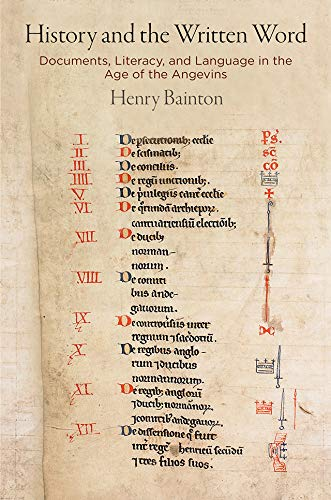 History and the Written Word
Documents, Literacy, and Language in the
Age of the Angevins
Henry Bainton
I. De psecutionib; ecclie ps̄.
II. De scismatib; sc̄
III. De conciliis. cō
IIII. De regū unctionib;.
V. De puilegiis cant' ecclie
VI. De qrunda archiepoꝝ.
cantuariensiū electiōib;
VII. De ducib;
norman-
norum.
VIII. De comiti
bus ande-
gauorum.
IX. De controuersiis inter
regnum ⁊ sacdotiū.
X. De regibus anglo
rum ⁊ ducibus
normannorum.
XI. De regib; angloꝝ
⁊ ducib; normannoꝝ,
⁊ comitib; andegauoꝝ.
XII. De dissensione q̄ fuit
int' regē henricū secundū
⁊ tres filios suos.